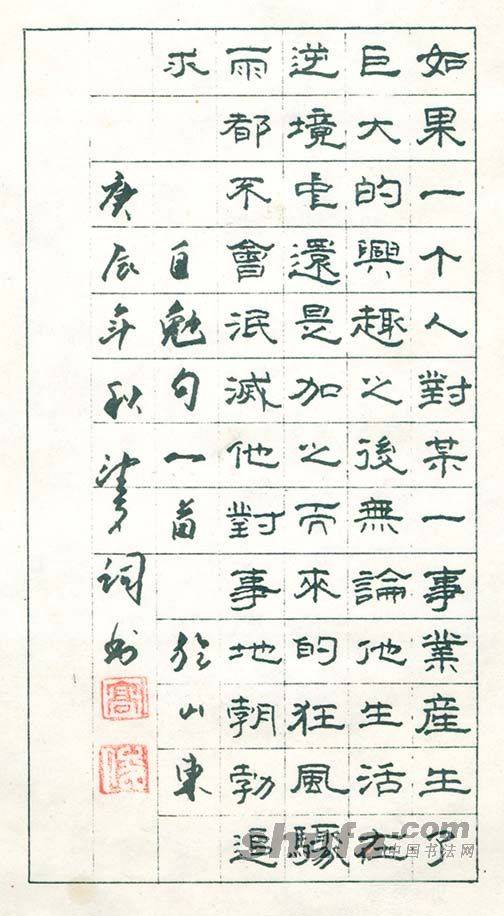 如果一个人對某一事業産生了
巨大的興趣之後無論他生活在
逆境還是加之而來的狂風驟
雨都不會泯滅他對事地朝勃追
求
自勉句一首 於山東
庚辰年秋
高
shufa.com
中国书法网